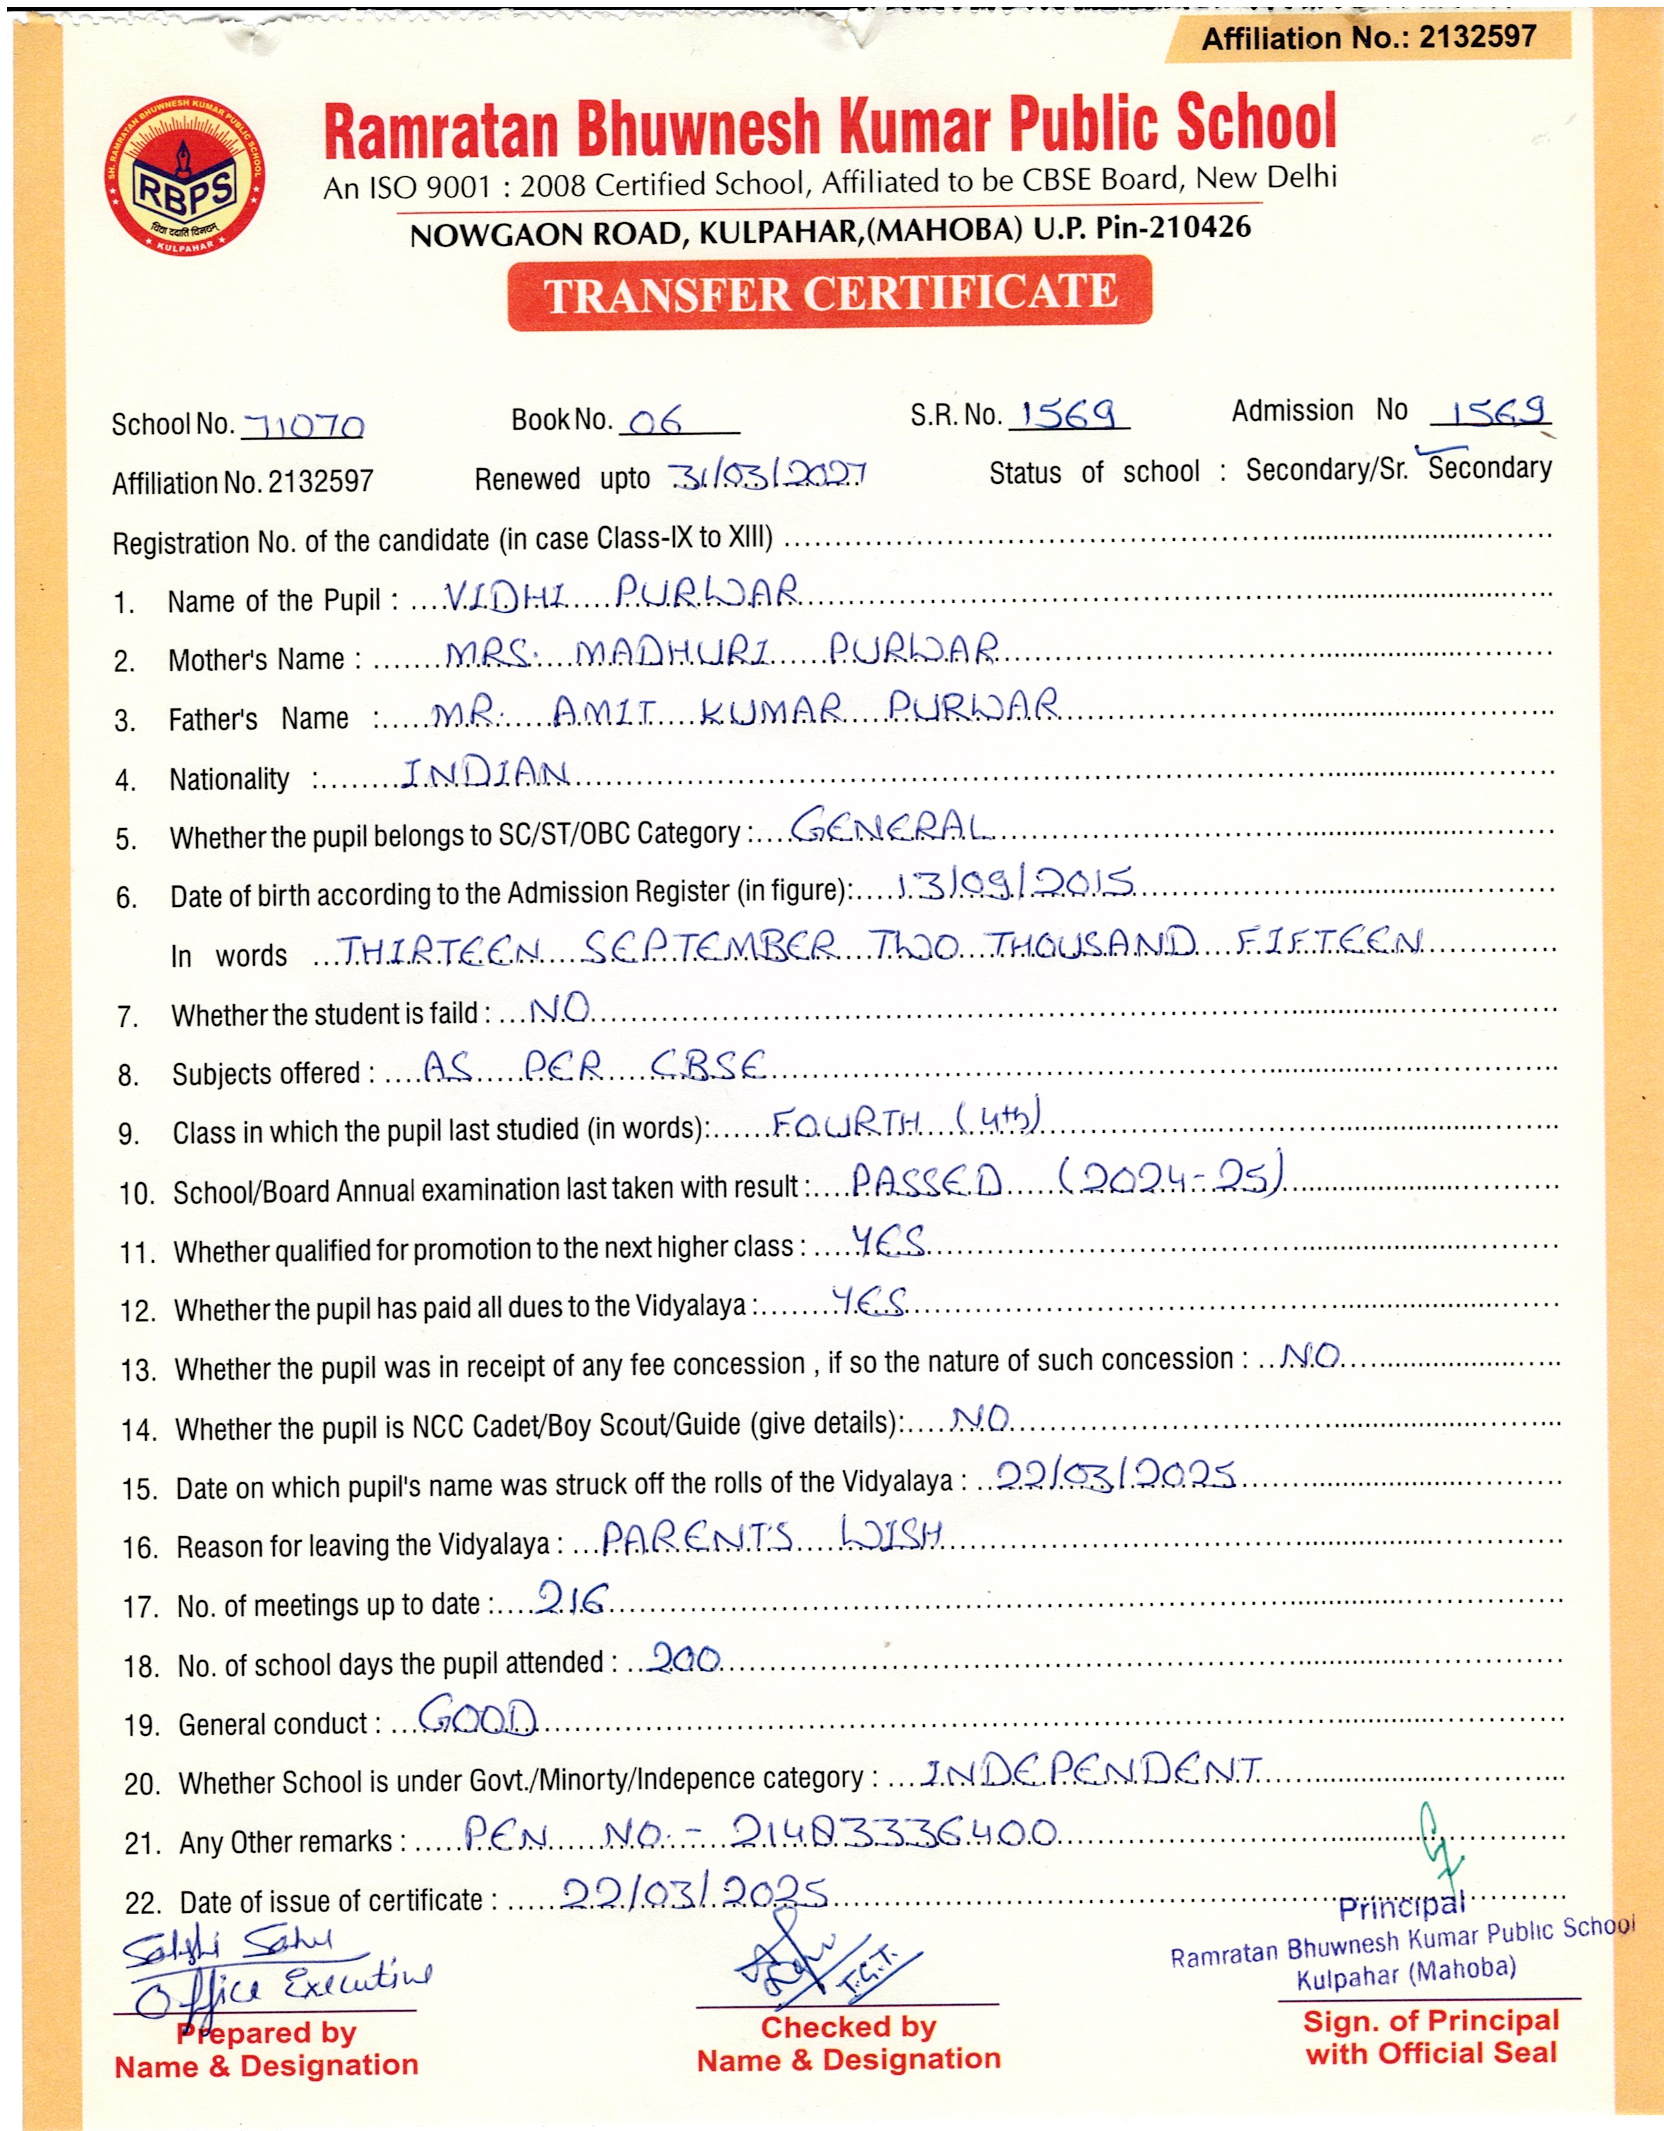 Affiliation No.: 2132597
SH. RAMRATAN BHUWNESH KUMAR PUBLIC SCHOOL
RBPS
विद्या ददाति विनयम्
★ KULPAHAR ★
Ramratan Bhuwnesh Kumar Public School
An ISO 9001 : 2008 Certified School, Affiliated to be CBSE Board, New Delhi
NOWGAON ROAD, KULPAHAR,(MAHOBA) U.P. Pin-210426
TRANSFER CERTIFICATE
School No. 71070 Book No. 06 S.R. No. 1569 Admission No 1569
Affiliation No. 2132597 Renewed upto 31/03/2027 Status of school : Secondary/Sr. Secondary
Registration No. of the candidate (in case Class-IX to XIII)
1. Name of the Pupil : VIDHI PURWAR
2. Mother's Name : MRS. MADHURI PURWAR
3. Father's Name : MR. AMIT KUMAR PURWAR
4. Nationality : INDIAN
5. Whether the pupil belongs to SC/ST/OBC Category : GENERAL
6. Date of birth according to the Admission Register (in figure): 13/09/2015
In words THIRTEEN SEPTEMBER TWO THOUSAND FIFTEEN
7. Whether the student is faild : NO
8. Subjects offered : AS PER CBSE
9. Class in which the pupil last studied (in words): FOURTH (4th)
10. School/Board Annual examination last taken with result : PASSED (2024-25)
11. Whether qualified for promotion to the next higher class : YES
12. Whether the pupil has paid all dues to the Vidyalaya : YES
13. Whether the pupil was in receipt of any fee concession , if so the nature of such concession : NO
14. Whether the pupil is NCC Cadet/Boy Scout/Guide (give details): NO
15. Date on which pupil's name was struck off the rolls of the Vidyalaya : 22/03/2025
16. Reason for leaving the Vidyalaya : PARENT'S WISH
17. No. of meetings up to date : 216
18. No. of school days the pupil attended : 200
19. General conduct : GOOD
20. Whether School is under Govt./Minorty/Indepence category : INDEPENDENT
21. Any Other remarks : PEN NO. - 21483336400
22. Date of issue of certificate : 22/03/2025
Sakshi Sahu
Office Executive
T.G.T.
Principal
Ramratan Bhuwnesh Kumar Public School
Kulpahar (Mahoba)
Prepared by
Name & Designation
Checked by
Name & Designation
Sign. of Principal
with Official Seal